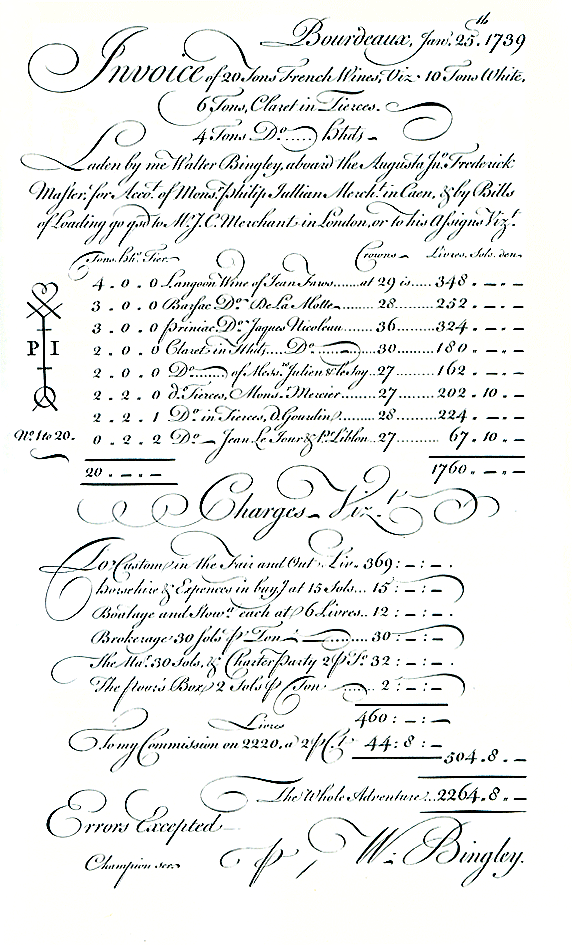 Bourdeaux, Janr. 25.th 1739
Invoice of 20 Tons French Wines, Viz. 10 Tons White,
6 Tons, Claret in Tierces.
4 Tons Do. Hhds
Laden by me Walter Bingley, aboard the Augusta Jno. Frederick
Master, for Accot. of Monsr. philip Jullian Mercht. in Caen, & by Bills
of Loading go gsd to Mr. J. C. Merchant in London, or to his Assigns Vizt.
Tons. Hhs. Tier. Crowns Livres. Sols. den
4 . 0 . 0 Langoon Wine of Jean Faros......at 29 is.....348 . – . –
3 . 0 . 0 Barsac Do. De La Motte...........28......252 . – . –
3 . 0 . 0 priniac Do. Jaques Nicoleau......36.........324 . – . –
P I
2 . 0 . 0 Claret in Hhds...... Do.......30.........180 . – . –
2 . 0 . 0 Do. of Messrs. Julien & le Say..27........162 . – . –
2 . 2 . 0 do. Tierces, Monsr. Mercier.......27.......202 . 10 . –
2 . 2 . 1 Do. in Tierces, d. Gourdin........28.......224 . – . –
No. 1 to 20. 0 . 2 . 2 Do. – Jean Le Tour & Liblon..27.........67 . 10 . –
20 . – . – 1760 . – . –
Charges – Vizt.
To Custom in the Fair and Out Liv. 369 : – : – .
horsehire & Expences in buy.g at 15 Sols... 15 : – : –
Boatage and Stow.g each at 6 Livres.. 12 : – : – .
Brokerage 30 Sols p Ton ........30 : – : –
The Mar. 30 Sols, & Charter party 2 p Tn. 32 : – : – .
The poor's Box 2 Sols p Ton ...... 2 : – : –
460 : – : –
Livres
To my Commission on 2220. a 2 p C.t 44 : 8 : –
504 . 8 . –
The Whole Adventure...2264 . 8 . –
Errors Excepted
p, W: Bingley.
Champion scr.